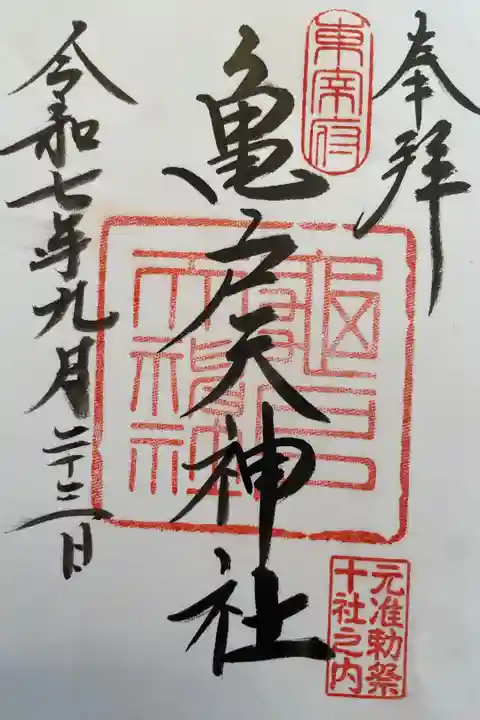 奉拝
東宰府
亀戸天神社
元准勅祭
十社之内
令和七年九月二十三日